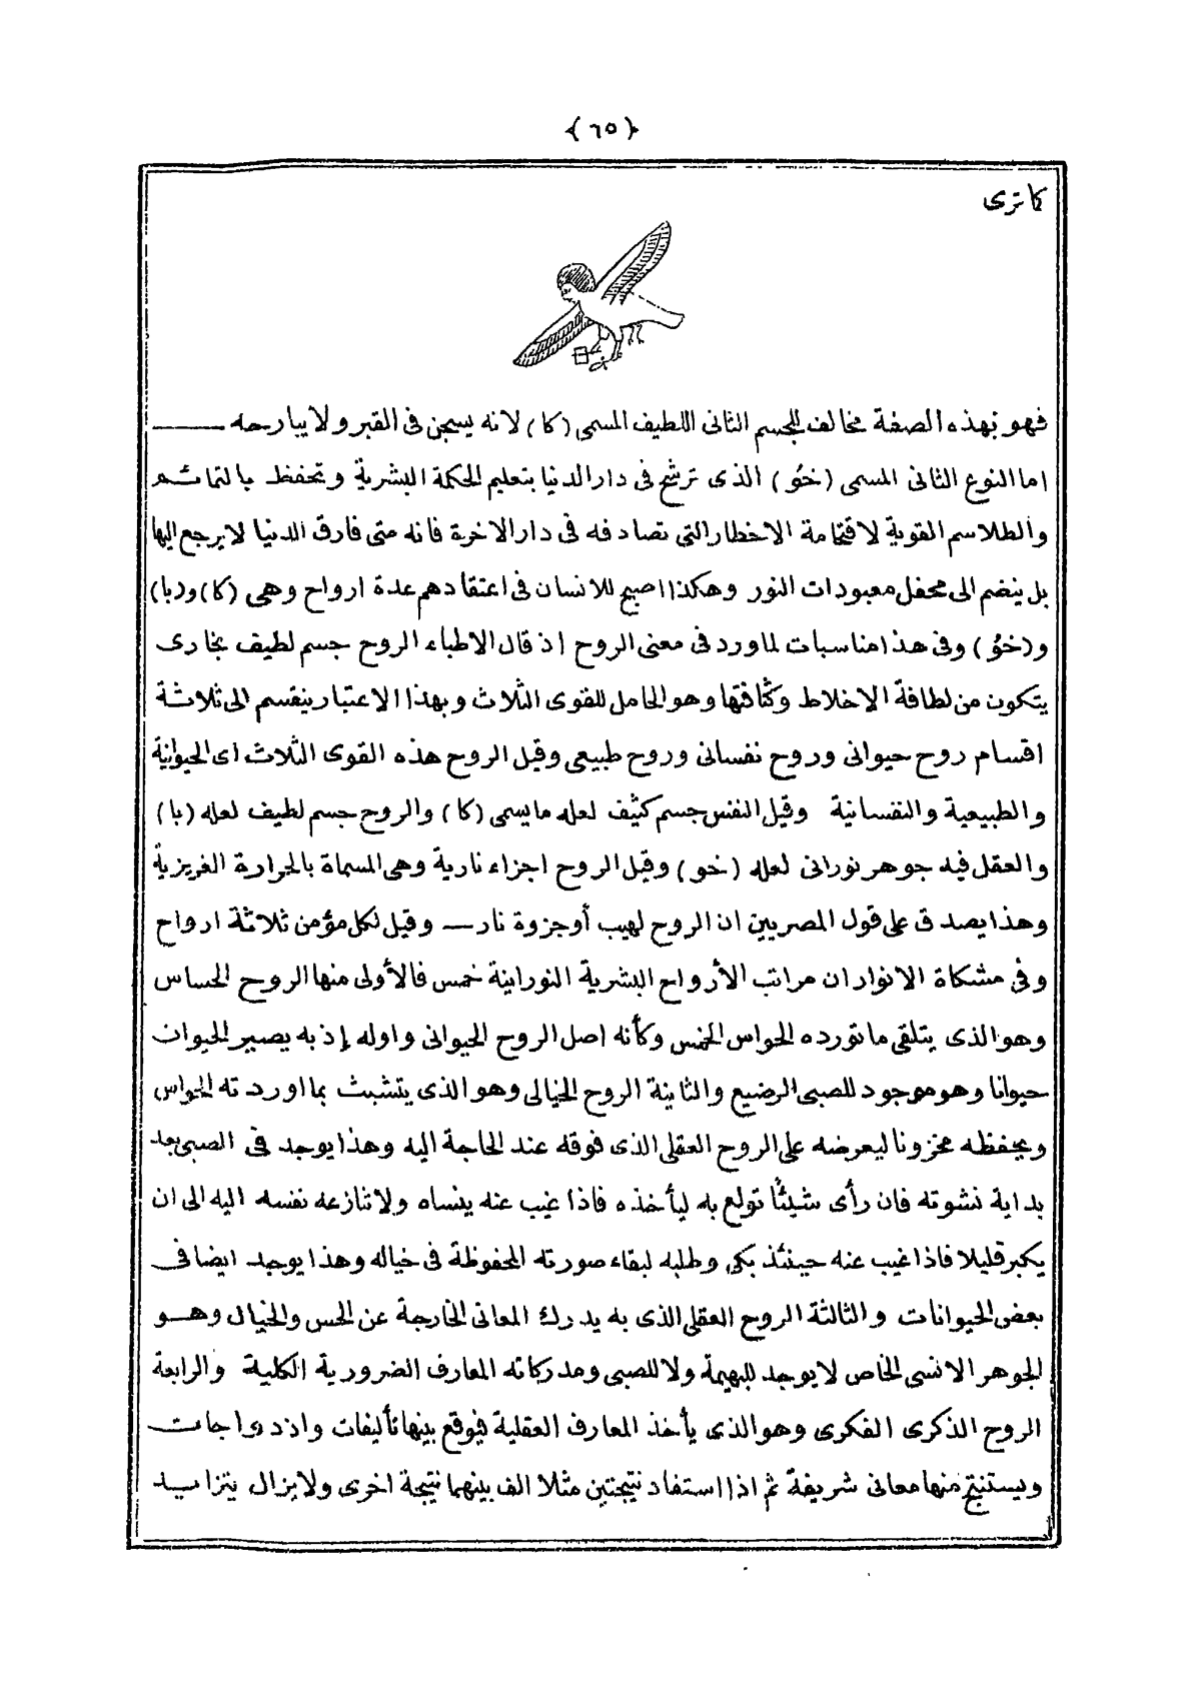 ﴿ ٦٥ ﴾
كما ترى
فهو بهذه الصفة مخالف للجسم الثانى اللطيف المسمى (كا) لانه يسجن فى القبر ولا يبارحه
اما النوع الثانى المسمى (خو) الذى ترشح فى دار الدنيا بتعليم الحكمة البشرية وتحفظ بالتمائم
والطلاسم القوية لاقتحامة الاخطار التى تصادفه فى دار الاخرة فانه متى فارق الدنيا لا يرجع اليها
بل ينضم الى محفل معبودات النور وهكذا اصبح للانسان فى اعتقادهم عدة ارواح وهى (كا) و(با)
و(خو) وفى هذا مناسبات لما ورد فى معنى الروح اذ قال الاطباء الروح جسم لطيف بخارى
يتكون من لطافة الاخلاط وكثافتها وهو الحامل للقوى الثلاث وبهذا الاعتبار ينقسم الى ثلاثة
اقسام روح حيوانى وروح نفسانى وروح طبيعى وقيل الروح هذه القوى الثلاث اى الحيوانية
والطبيعية والنفسانية وقيل النفس جسم كثيف لعله ما يسمى (كا) والروح جسم لطيف لعله (با)
والعقل فيه جوهر نورانى لعله (خو) وقيل الروح اجزاء نارية وهى المسماة بالحرارة الغريزية
وهذا يصدق على قول المصريين ان الروح لهيب أوجزوة نار ــ وقيل لكل مؤمن ثلاثة ارواح
وفى مشكاة الانوار ان مراتب الأرواح البشرية النورانية خمس فالأولى منها الروح الحساس
وهو الذى يتلقى ما تورده الحواس الخمس وكأنه اصل الروح الحيوانى واوله إذ به يصير الحيوان
حيوانا وهو موجود للصبى الرضيع والثانية الروح الخيالى وهو الذى يتشبث بما اوردته الحواس
ويحفظه مخزونا ليعرضه على الروح العقلى الذى فوقه عند الحاجة اليه وهذا يوجد فى الصبى بعد
بداية نشوته فان رأى شيئًا تولع به ليأخذه فاذا غيب عنه ينساه ولا تنازعه نفسه اليه الى ان
يكبر قليلا فاذا غيب عنه حينئذ بكى وطلبه لبقاء صورته المحفوظة فى خياله وهذا يوجد ايضا فى
بعض الحيوانات والثالثة الروح العقلى الذى به يدرك المعانى الخارجة عن الحس والخيال وهو
الجوهر الانسى الخاص لا يوجد للبهيمة ولا للصبى ومدركاته المعارف الضرورية الكلية والرابعة
الروح الذكرى الفكرى وهو الذى يأخذ المعارف العقلية فيوقع بينها تأليفات وازدواجات
ويستنتج منها معانى شريفة ثم اذا استفاد نتيجتين مثلا الف بينهما نتيجة اخرى ولا يزال يتزايد